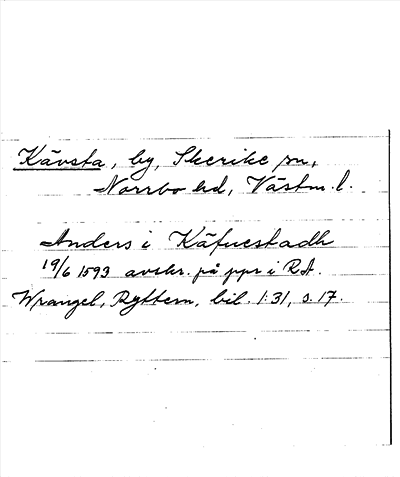 Kävsta, by, Skerike sn,
Norrbo hd, Västm. l.
Anders i Käfuestadh
19/6 1593 avskr. på ppr i RA.
Wrangel, Ryttern, bil. 1:31, s. 17.